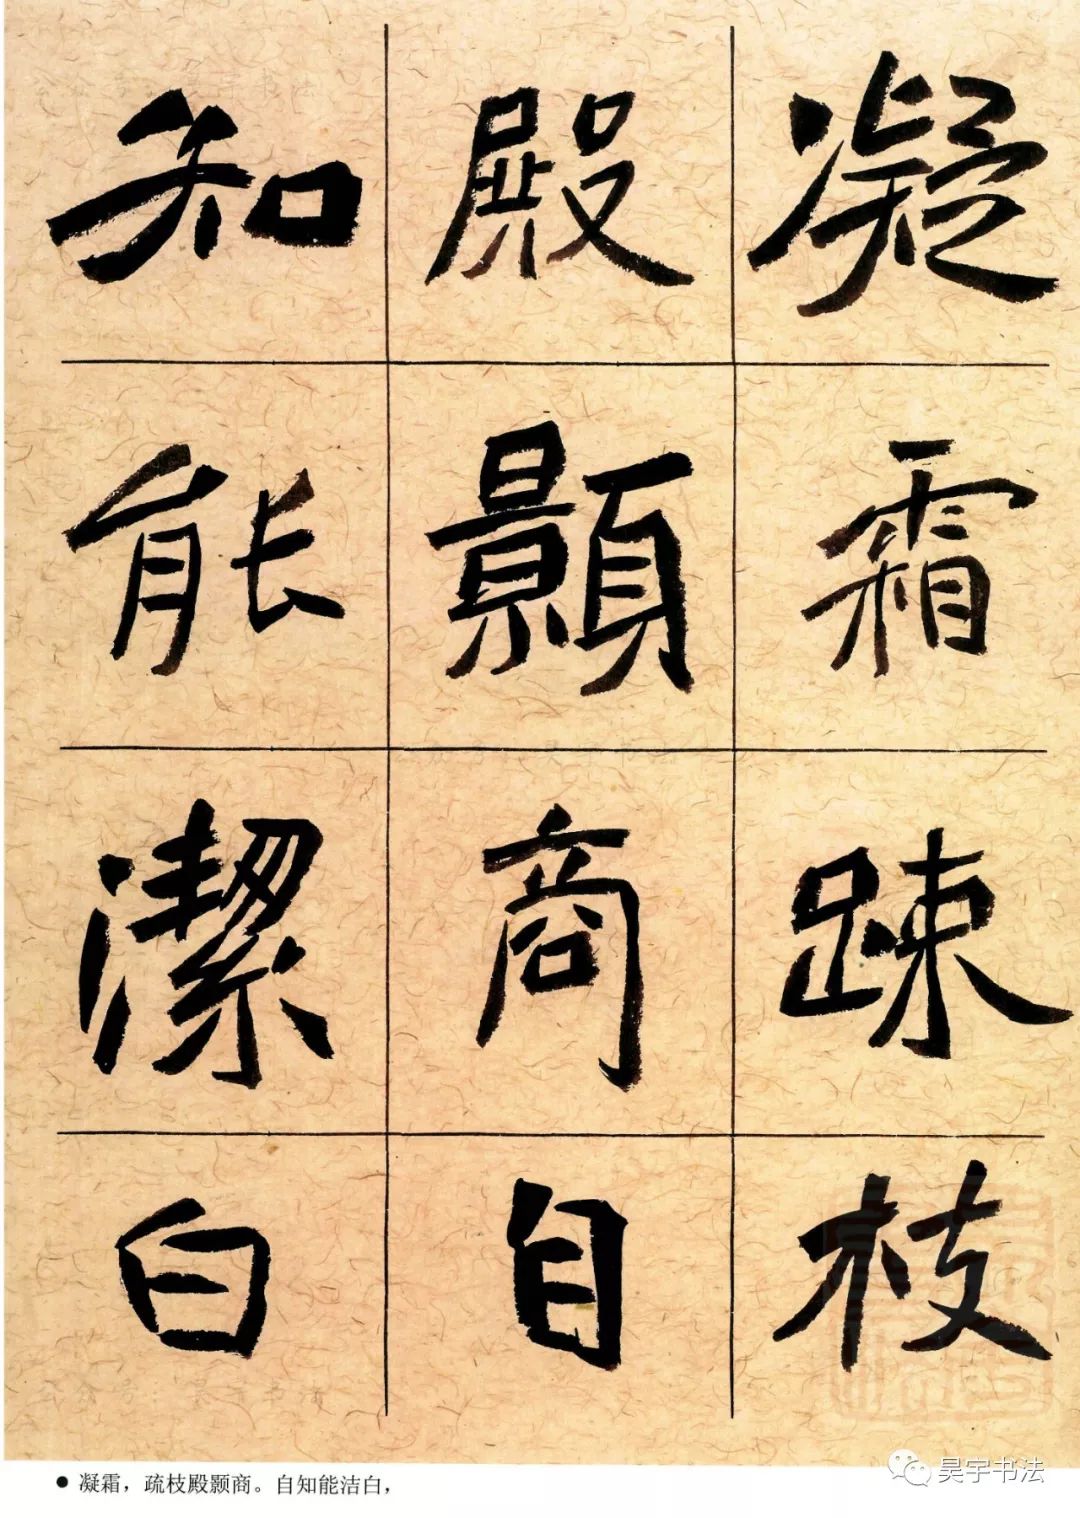 凝霜踈枝
殿顥商自
知能潔白
●凝霜，疏枝殿颢商。自知能洁白，
昊宇书法